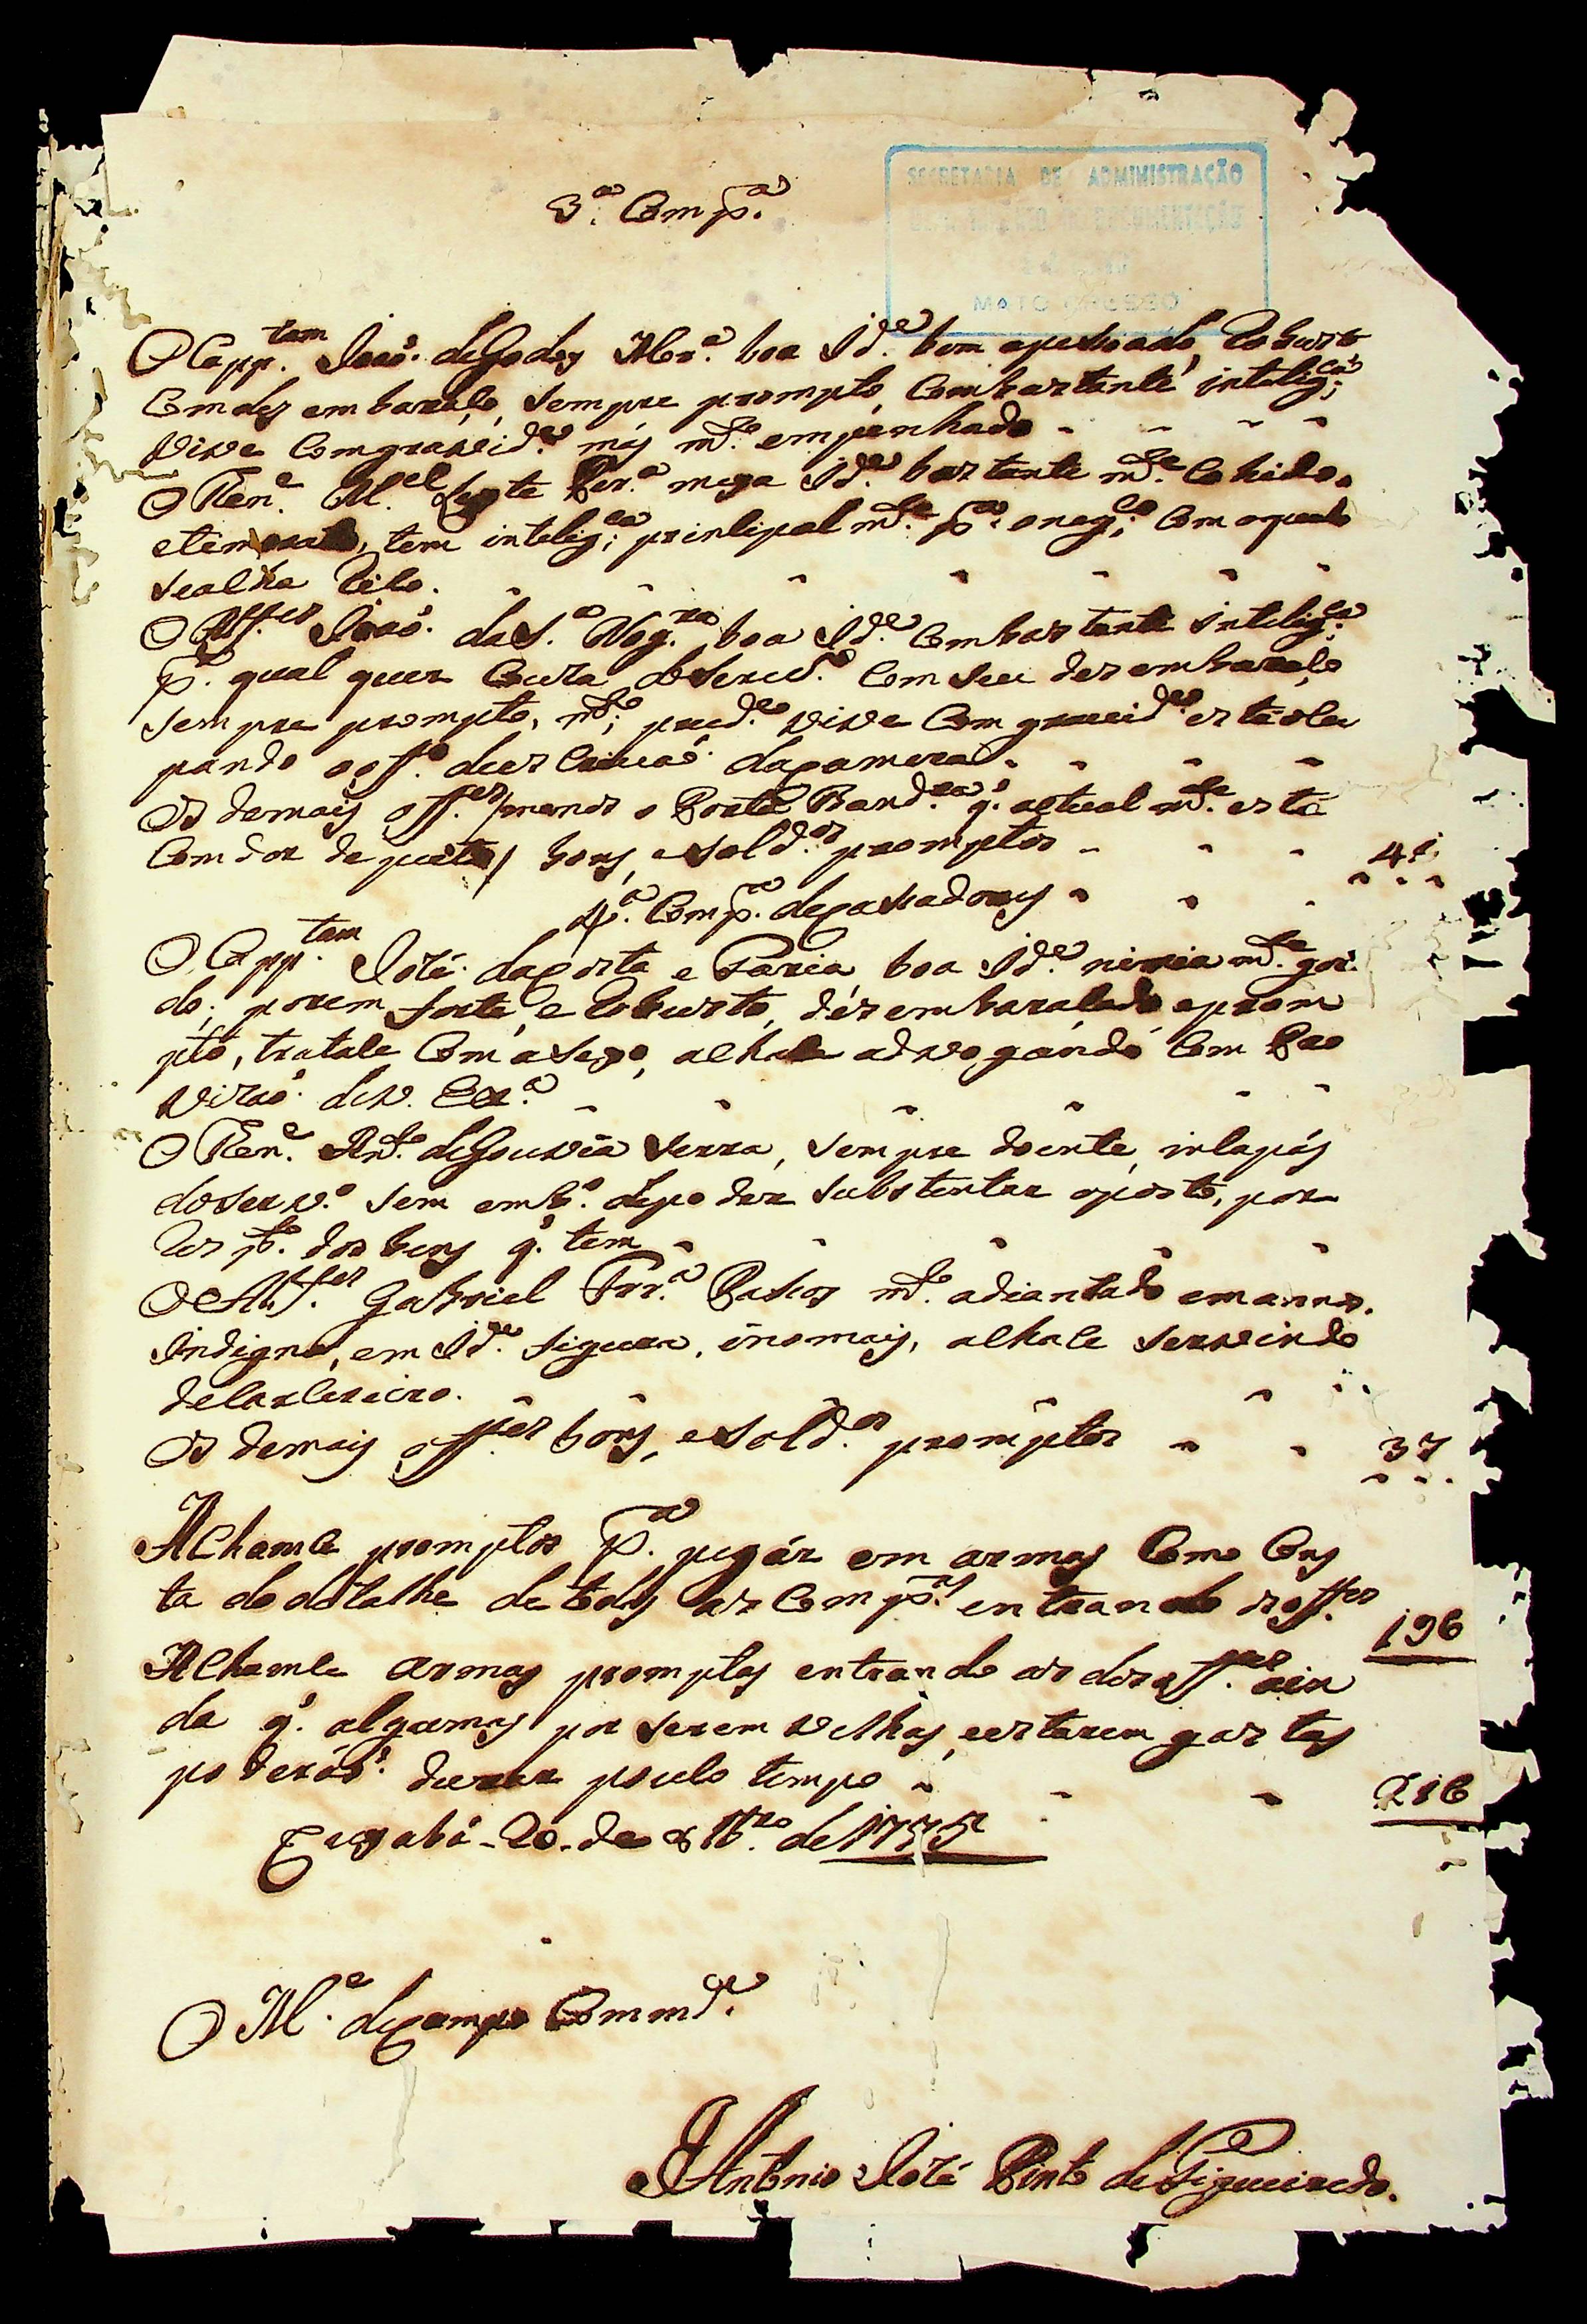 SECRETARIA DE ADMINISTRAÇÃO
MATO GROSSO
3.ª Comp.ª
O Capp.tam João de Godoy Mor.ª boa Id.e bem apessoado, Robusto
Com dez embaraço, sempre prompto, Com bastante intelig.ca
Vive Com gravid.e mas m.to empenhado
O Ten.e M.el Leyte Per.ª meya Id.e bastante m.te Cahido,
e temorato, tem intelig.ca principalm.te p.ª o neg.co Com o qual
se acha Rico.
O Alf.es João da S.ª Nog.ra boa Id.e Com bastante intelig.ca
p.ª qual quer Couza do Seru.º Com seu dezembaraço
sempre prompto, m.to prud.e vive Com gravid.e esta ocu
pando o off.º de escrivaõ da camera
Os demais off.es /menos o Porta Band.ra q̃ actualm.te está
Com dor de peito/ bons, e Sold.os promptos 41
4.ª Comp.ª de cassadores
O Capp.tam José da Costa e Faria, boa Id.e nimiam.te gor
do, porem forte, e Robusto, dezembaraçado e prom
pto, trata-se Com aseyo, acha-se advogando Com Pro
vizaõ de V. Ex.ª
O Ten.e Ant.º de Gouvêa Serra, sempre doente, incapás
do Serv.º sem emb.º de poder substentar o posto, por
Res p.to dos bens q̃ tem
O Alf.es Gabriel Frr.ª Bastos m.to adiantado em annos,
Indigno, em Id.e figura, e no mais, acha-se servindo
de Carcereiro.
Os demais off.es bons, e Sold.os promptos 37
Acham-se promptos p.ª pegár em armas Como Cons
ta do detalhe de todas as Comp.as entrando os off.es 196
Acham-se armas promptas entrando as dos off.es ain
da q̃ algumas por serem velhas, e estarem gastas
poderáõ durar pouco tempo 216
Cuyabá 20 de 8tb.ro de 1775
O M.e de Campo Comm.de
Antonio José Pinto de Figueiredo.